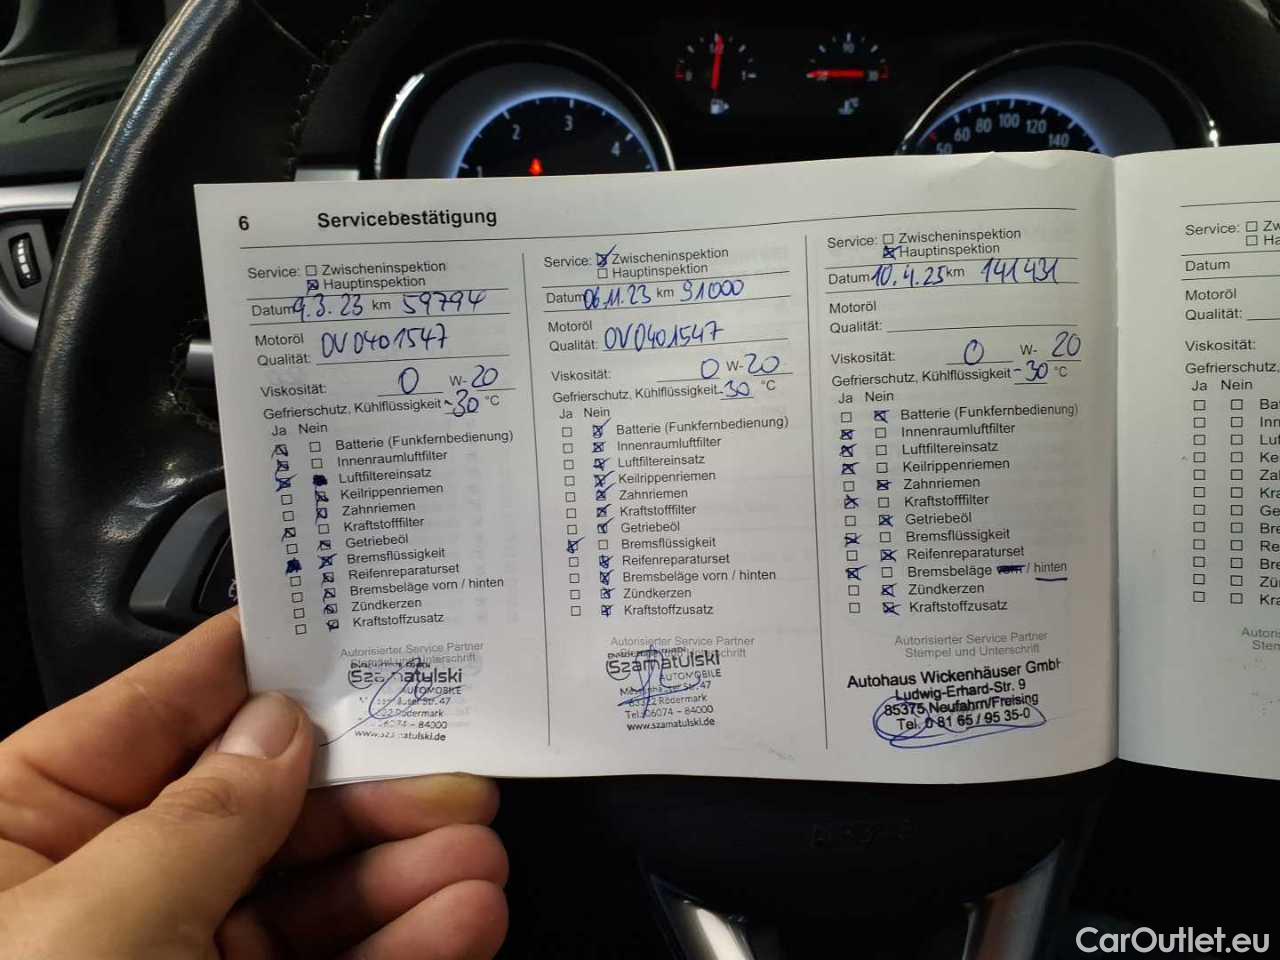 6 Servicebestätigung
Service: Zwischeninspektion
Hauptinspektion
Datum 9.3.23 km 59794
Motoröl
Qualität: OV0401547
Viskosität: 0 W-20
Gefrierschutz, Kühlflüssigkeit -30 °C
Ja Nein
Batterie (Funkfernbedienung)
Innenraumluftfilter
Luftfiltereinsatz
Keilrippenriemen
Zahnriemen
Kraftstofffilter
Getriebeöl
Bremsflüssigkeit
Reifenreparaturset
Bremsbeläge vorn / hinten
Zündkerzen
Kraftstoffzusatz
Autorisierter Service Partner
Stempel und Unterschrift
Szamatulski
AUTOMOBILE
Str. 47
Rödermark
06074 - 84000
Service: Zwischeninspektion
Hauptinspektion
Datum 06.11.23 km 91000
Motoröl
Qualität: OV0401547
Viskosität: 0 W-20
Gefrierschutz, Kühlflüssigkeit -30 °C
Ja Nein
Batterie (Funkfernbedienung)
Innenraumluftfilter
Luftfiltereinsatz
Keilrippenriemen
Zahnriemen
Kraftstofffilter
Getriebeöl
Bremsflüssigkeit
Reifenreparaturset
Bremsbeläge vorn / hinten
Zündkerzen
Kraftstoffzusatz
Autorisierter Service Partner
Szamatulski
AUTOMOBILE
Str. 47
63322 Rödermark
Tel. 06074 - 84000
www.szamatulski.de
Service: Zwischeninspektion
Hauptinspektion
Datum 10.4.25 km 141431
Motoröl
Qualität:
Viskosität: 0 W-20
Gefrierschutz, Kühlflüssigkeit -30 °C
Ja Nein
Batterie (Funkfernbedienung)
Innenraumluftfilter
Luftfiltereinsatz
Keilrippenriemen
Zahnriemen
Kraftstofffilter
Getriebeöl
Bremsflüssigkeit
Reifenreparaturset
Bremsbeläge vorn / hinten
Zündkerzen
Kraftstoffzusatz
Autorisierter Service Partner
Stempel und Unterschrift
Autohaus Wickenhäuser GmbH
Ludwig-Erhard-Str. 9
85375 Neufahrn/Freising
Tel. 0 81 65 / 95 35-0
Service: Zw
Ha
Datum
Motoröl
Qualität:
Viskosität:
Gefrierschutz,
Ja Nein
Ba
Inn
Luf
Ke
Za
Kra
Ge
Bre
Re
Bre
Zü
Kra
Autoris
Stem
1 2 3 4
0 1
90
60 80 100 120 140
CarOutlet.eu